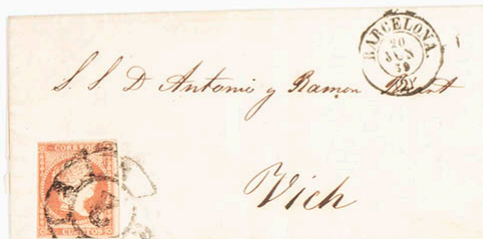 BARCELONA
20
JUN
59
(2)
S. S. D Antonio y Ramon
CORREOS
CUARTOS
Vich